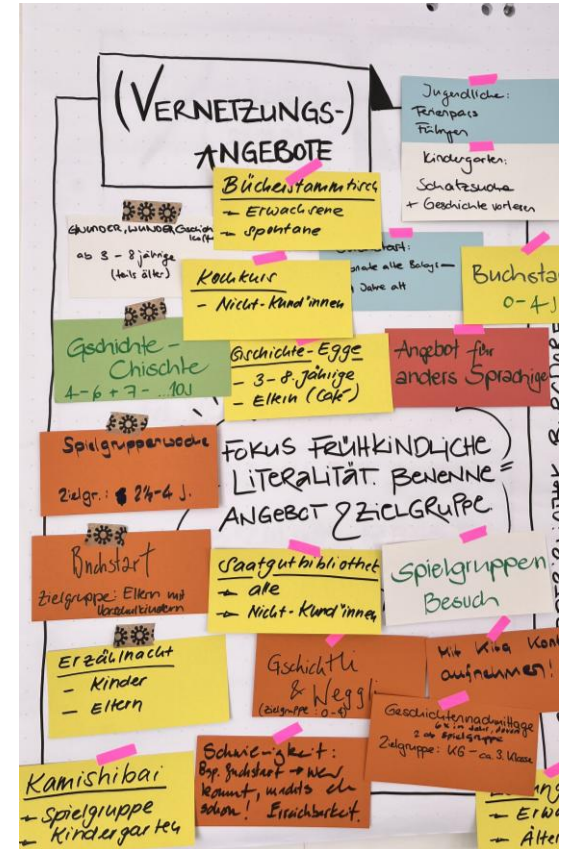 (VERNETZUNGS-)
ANGEBOTE
Jugendliche:
Ferienpass
Führungen
Kindergarten:
Schatzsuche
+ Geschichte vorlesen
Bücherstammtisch
- Erwachsene
- spontane
ab 3 - 8 jährige
(teils älter)
Kochkurs
- Nicht-Kund'innen
alle Babys
Jahre alt
Buchsta
0-4 J
Gschichte-
Chischte
4-6 + 7- ...10J
Gschichte-Egge
- 3-8 jährige
- Eltern (Café)
Angebot für
anders Sprachige
Spielgruppenwoche
Zielgr.: 2½-4 J.
FOKUS FRÜHKINDLICHE
LITERALITÄT. BENENNE
ANGEBOT & ZIELGRUPPE
Buchstart
Zielgruppe: Eltern mit
Vorschulkindern
Saatgutbibliothek
- alle
- Nicht-Kund'innen
Spielgruppen
Besuch
Erzählnacht
- Kinder
- Eltern
Gschichtli
& Weggli
(Zielgruppe: 0-4)
Mit Kiba Kont
aufnehmen!
Geschichtennachmittage
6x im Jahr, davon
2 ab Spielgruppe
Zielgruppe: KG - ca. 3. Klasse
Kamishibai
- Spielgruppe
- Kindergarten
Schwierigkeit:
Bsp. Buchstart → wer
kommt, machts eh
schon! Erreichbarkeit.
- Erwa
- Älter